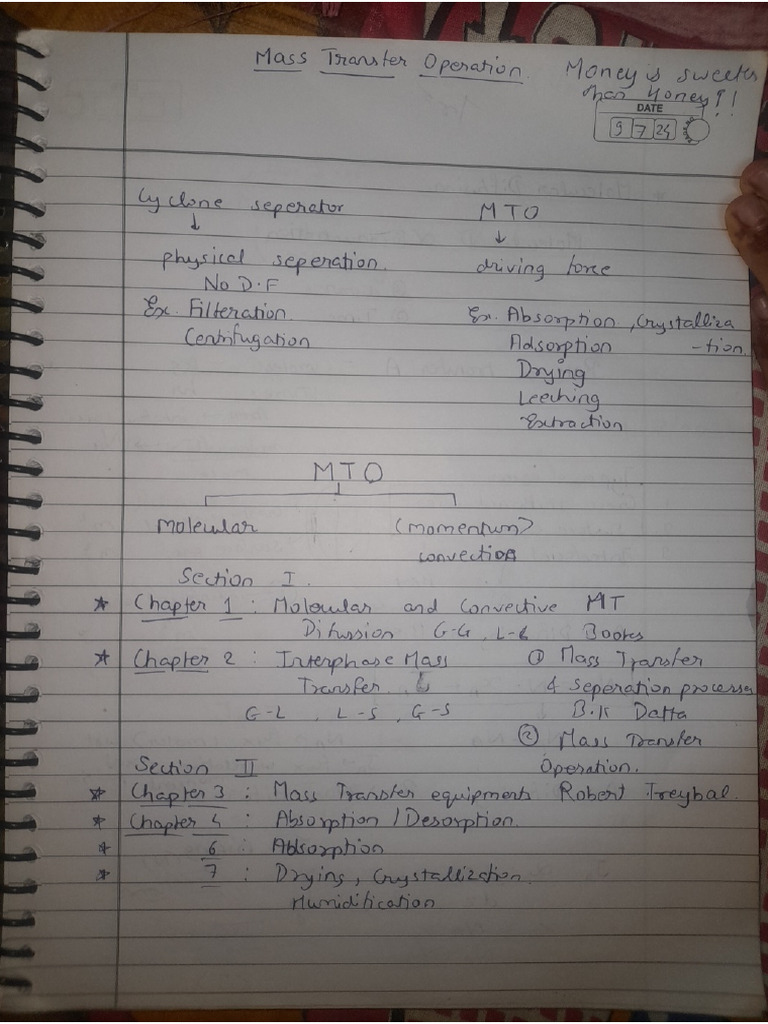 Mass Transfer Operation. Money is sweeter
than Honey!!
DATE
9 7 24
Cyclone seperator MTO
↓ ↓
physical seperation. driving force
No D.F
Ex. Filteration Ex. Absorption, Crystalliza
Centrifugation Adsorption -tion.
Drying
Leeching
Extraction
MTO
Molecular (momentum)
convection
Section I.
* Chapter 1 : Molecular and Convective MT
Difussion G-G, L-L Books
* Chapter 2 : Interphase Mass ① Mass Transfer
Transfer & seperation processes
G-L, L-S, G-S B.K Datta
② Mass Transfer
Section II Operation.
* Chapter 3 : Mass Transfer equipments Robert Treybal.
* Chapter 4 : Absorption / Desorption.
* 6 : Adsorption
* 7 : Drying, Crystallization.
Humidification